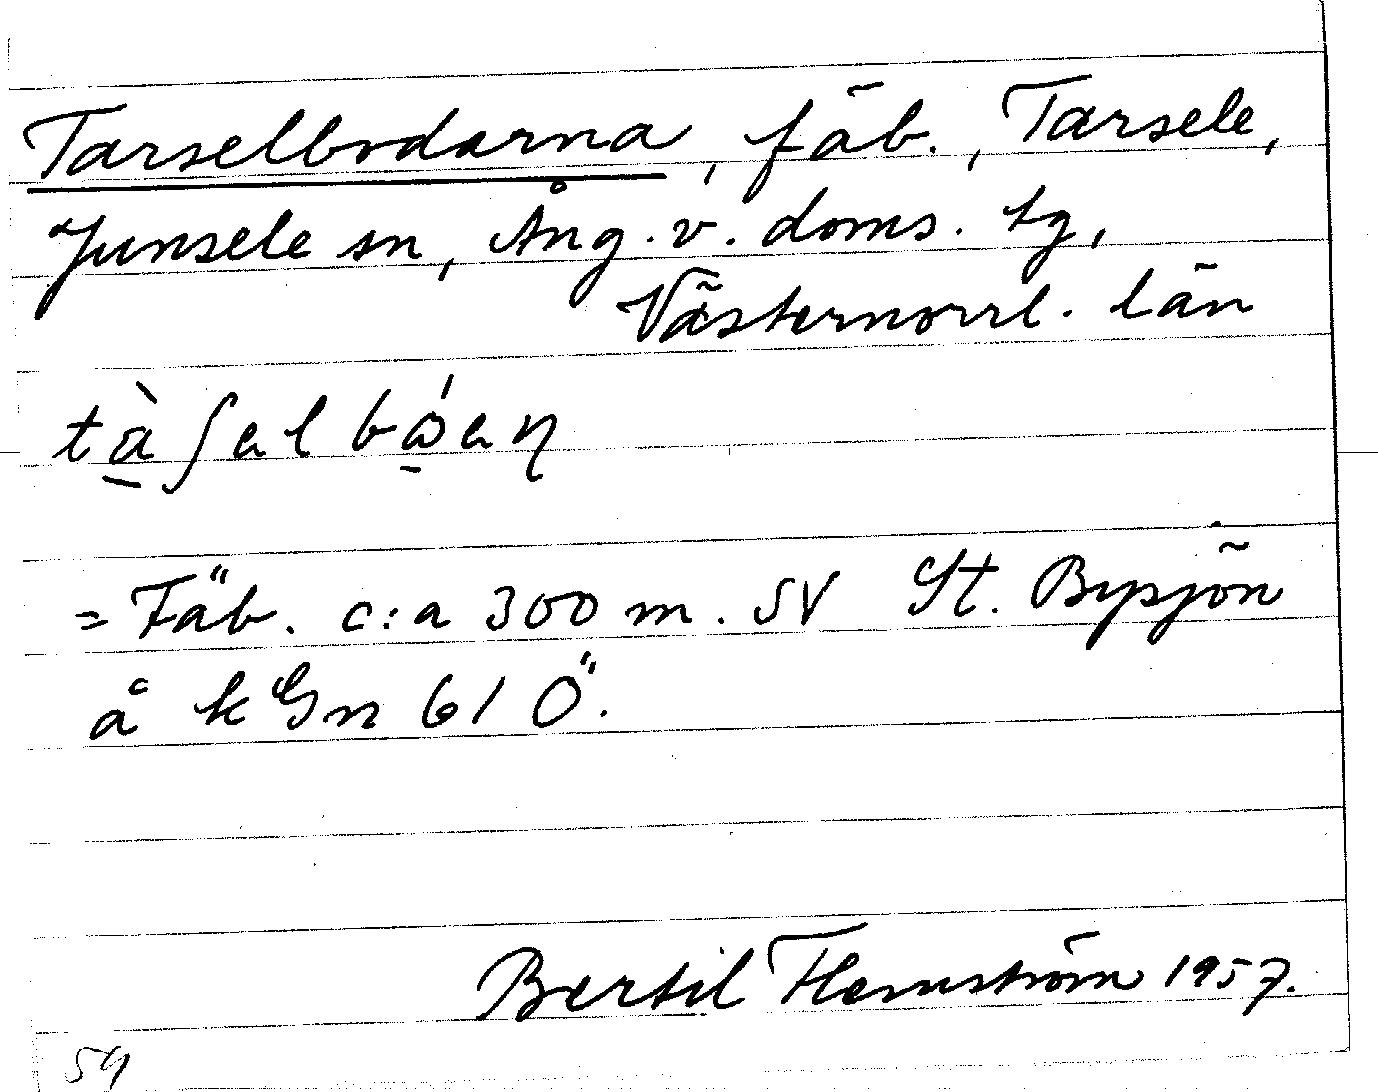 Tarselbodarna, fäb., Tarsele,
Junsele sn, Ång. v. doms. tg,
Västernorrl. län
= Fäb. c:a 300 m. SV St. Bysjön
å k Gn 61 Ö.
Bertil Flemström 1957.
59